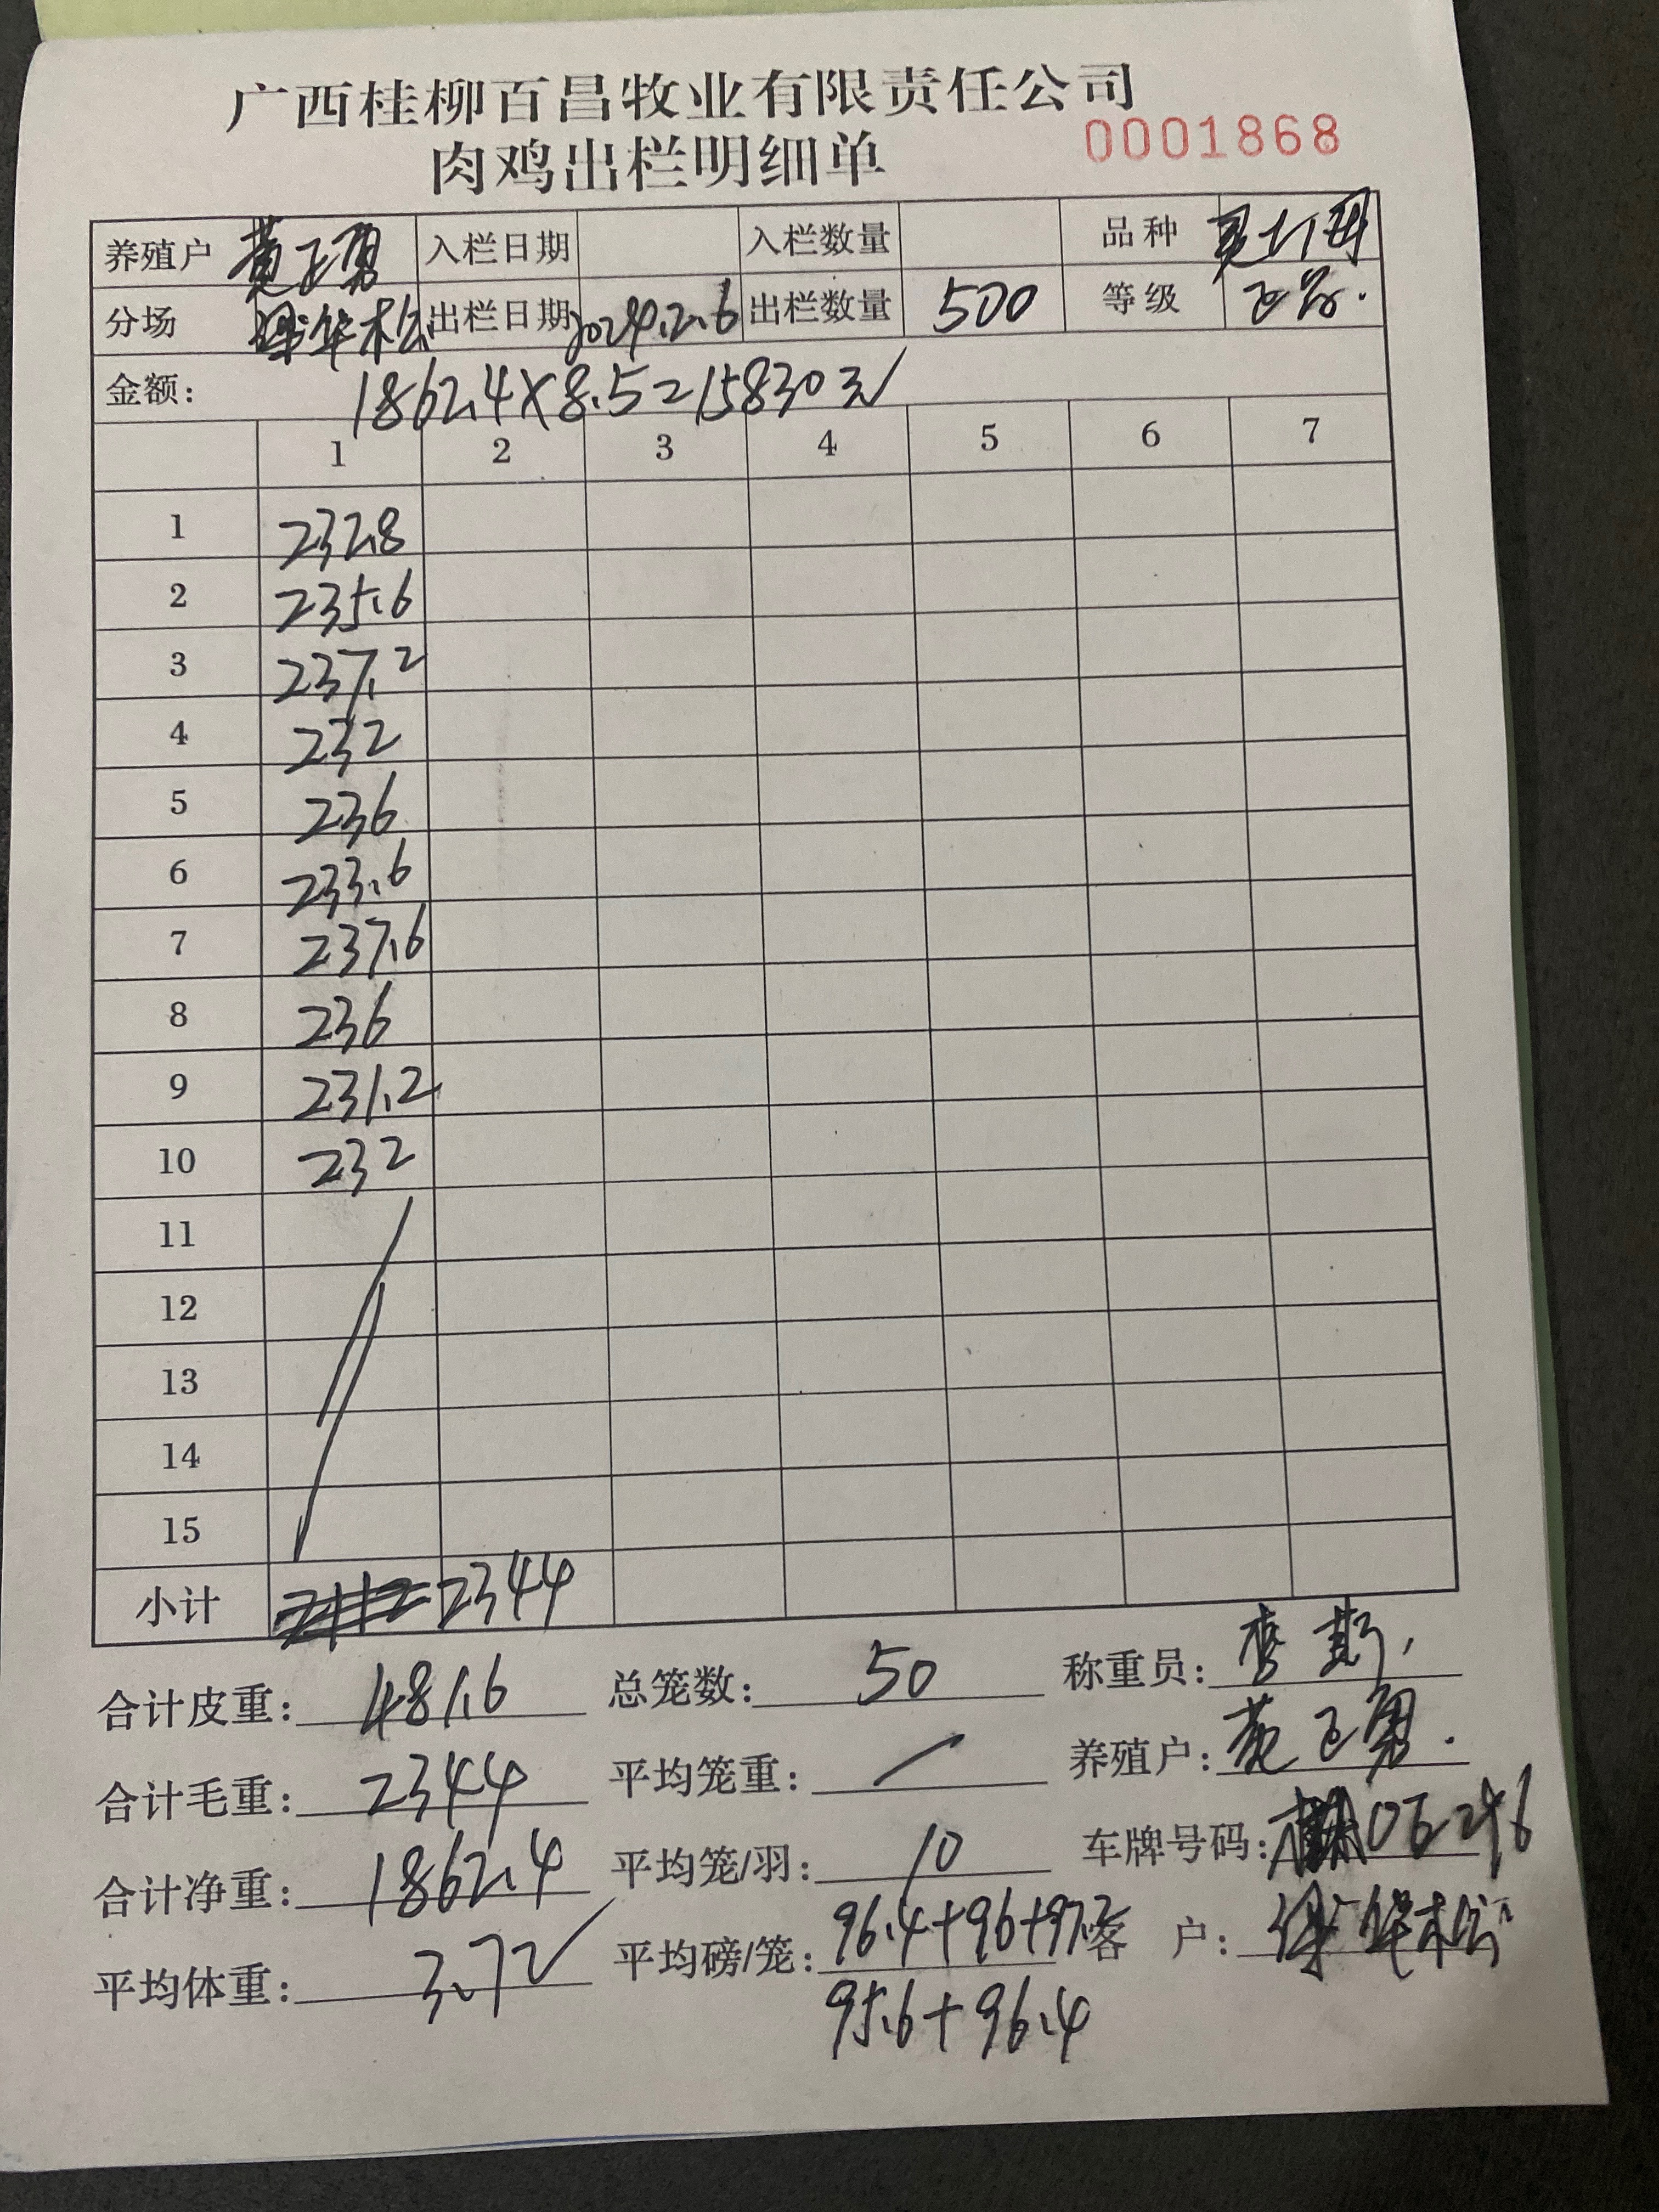 广西桂柳百昌牧业有限责任公司
肉鸡出栏明细单 0001868
养殖户 黄飞勇 入栏日期 入栏数量 品种
分场 出栏日期 2024.2.6 出栏数量 500 等级
金额: 1862.4×8.5=15830元
1 2 3 4 5 6 7
1 232.8
2 235.6
3 237.2
4 232
5 236
6 233.6
7 237.6
8 236
9 231.2
10 232
11
12
13
14
15
小计 2344
合计皮重: 481.6 总笼数: 50 称重员:
合计毛重: 2344 平均笼重: 养殖户: 黄飞勇.
合计净重: 1862.4 平均笼/羽: 10 车牌号码:
平均体重: 3.72 平均磅/笼: 96.4+96+97.2 客 户:
95.6+96.4